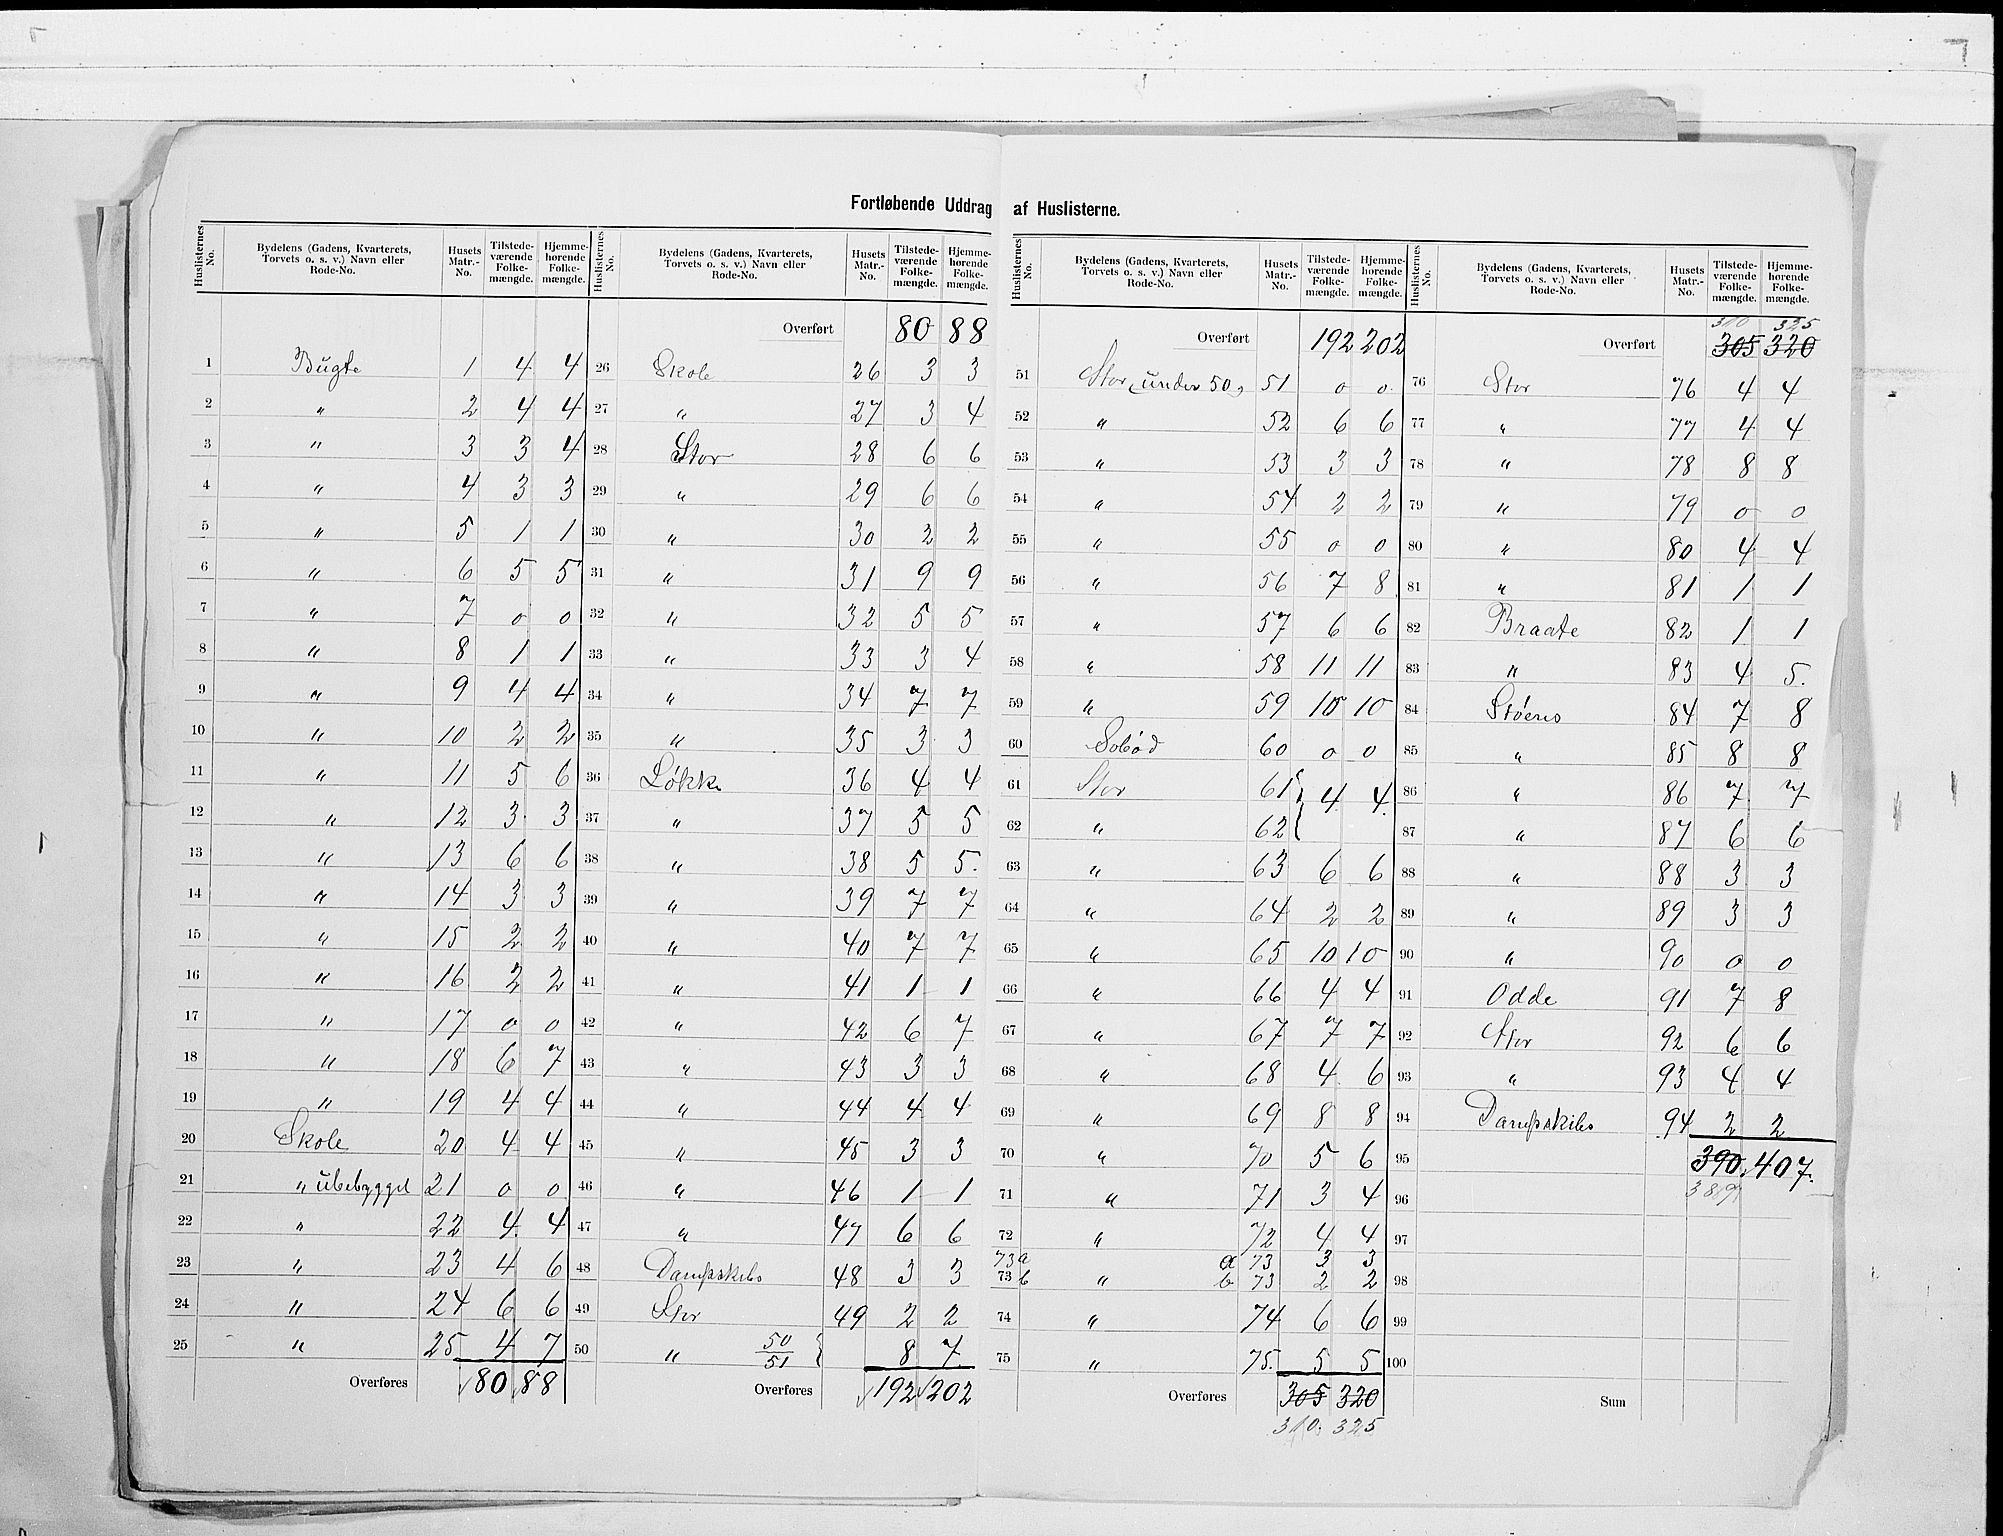 Fortløbende Uddrag af Huslisterne.
Huslisternes No. | Bydelens (Gadens, Kvarterets, Torvets o. s. v.) Navn eller Rode-No. | Husets Matr.-No. | Tilstede-værende Folke-mængde. | Hjemme-hørende Folke-mængde.
1 Bugte 1 4 4
2 " 2 4 4
3 " 3 3 4
4 " 4 3 3
5 " 5 1 1
6 " 6 5 5
7 " 7 0 0
8 " 8 1 1
9 " 9 4 4
10 " 10 2 2
11 " 11 5 6
12 " 12 3 3
13 " 13 6 6
14 " 14 3 3
15 " 15 2 2
16 " 16 2 2
17 " 17 0 0
18 " 18 6 7
19 " 19 4 4
20 Skole 20 4 4
21 " ubebygget 21 0 0
22 " 22 4 4
23 " 23 4 6
24 " 24 6 6
25 " 25 4 7
Overføres 80 88
Huslisternes No. | Bydelens (Gadens, Kvarterets, Torvets o. s. v.) Navn eller Rode-No. | Husets Matr.-No. | Tilstede-værende Folke-mængde. | Hjemme-hørende Folke-mængde.
Overført 80 88
26 Skole 26 3 3
27 " 27 3 4
28 Stor 28 6 6
29 " 29 6 6
30 " 30 2 2
31 " 31 9 9
32 " 32 5 5
33 " 33 3 4
34 " 34 7 7
35 " 35 3 3
36 Løkke 36 4 4
37 " 37 5 5
38 " 38 5 5.
39 " 39 7 7
40 " 40 7 7
41 " 41 1 1
42 " 42 6 7
43 " 43 3 3
44 " 44 4 4
45 " 45 3 3
46 " 46 1 1
47 " 47 6 6
48 Dampskibs 48 3 3
49 Stor 49 2 2
50 " 50/51 } 8 7
Overføres 192 202
Huslisternes No. | Bydelens (Gadens, Kvarterets, Torvets o. s. v.) Navn eller Rode-No. | Husets Matr.-No. | Tilstede-værende Folke-mængde. | Hjemme-hørende Folke-mængde.
Overført 192 202
51 Stor (under 50) 51 0 0.
52 " 52 6 6
53 " 53 3 3
54 " 54 2 2
55 " 55 0 0
56 " 56 7 8
57 " 57 6 6
58 " 58 11 11
59 " 59 10 10
60 Sobød 60 0 0
61 Stor 61 } 4 4
62 " 62
63 " 63 6 6
64 " 64 2 2
65 " 65 10 10
66 " 66 4 4
67 " 67 7 7
68 " 68 4 6
69 " 69 8 8
70 " 70 5 6
71 " 71 3 4
72 " 72 4 4
73a a 73 3 3
73 b " b 73 2 2
74 " 74 6 6
75 " 75. 5 5
Overføres 305 320
310. 325
Huslisternes No. | Bydelens (Gadens, Kvarterets, Torvets o. s. v.) Navn eller Rode-No. | Husets Matr.-No. | Tilstede-værende Folke-mængde. | Hjemme-hørende Folke-mængde.
310 325
Overført 305 320
76 Stor 76 4 4
77 " 77 4 4
78 " 78 8 8
79 " 79 0 0
80 " 80 4 4
81 " 81 1 1
82 Braate 82 1 1
83 " 83 4 5.
84 Støens 84 7 8
85 " 85 8 8
86 " 86 7 7
87 " 87 6 6
88 " 88 3 3
89 " 89 3 3
90 " 90 0 0
91 Odde 91 7 8
92 Stor 92 6 6
93 " 93 4 4
94 Dampskibs 94 2 2
95 390 407.
96 389
97
98
99
100
Sum